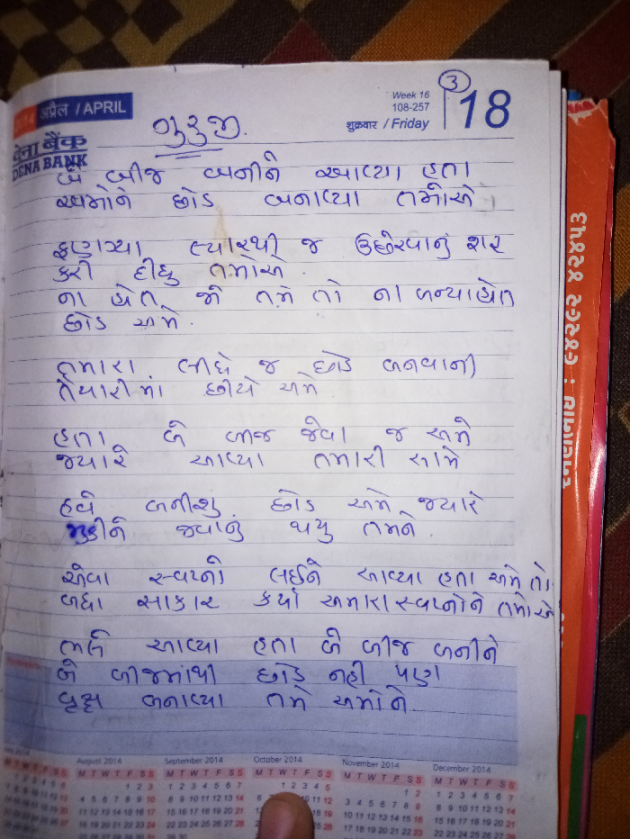 अप्रैल / APRIL
Week 16
③
108-257
शुक्रवार / Friday
18
देना बैंक
DENA BANK
ગુરુજી.
બે બીજ બનીને આવ્યા હતા
અમોને છોડ બનાવ્યા તમોએ
ફણગ્યા ત્યારથી જ ઉછેરવાનું શરૂ
કરી દીધુ તમોએ.
ના હોત જો તમે તો ના બન્યા હોત
છોડ અમે.
તમારા લીધે જ છોડ બનવાની
તૈયારીમાં છીયે અમે
હતા બે બીજ જેવા જ અમે
જ્યારે આવ્યા તમારી સામે
હવે બનીશુ છોડ અમે જ્યારે
મુકીને જવાનુ થયુ તમને.
એવા સ્વપ્નો લઈને આવ્યા હતા અમે તો
બધા સાકાર કર્યા અમારા સ્વપ્નોને તમોએ
ભલે આવ્યા હતા બે બીજ બનીને
બે બીજમાંથી છોડ નહી પણ
વૃક્ષ બનાવ્યા તમે અમોને
August 2014
September 2014
October 2014
November 2014
December 2014